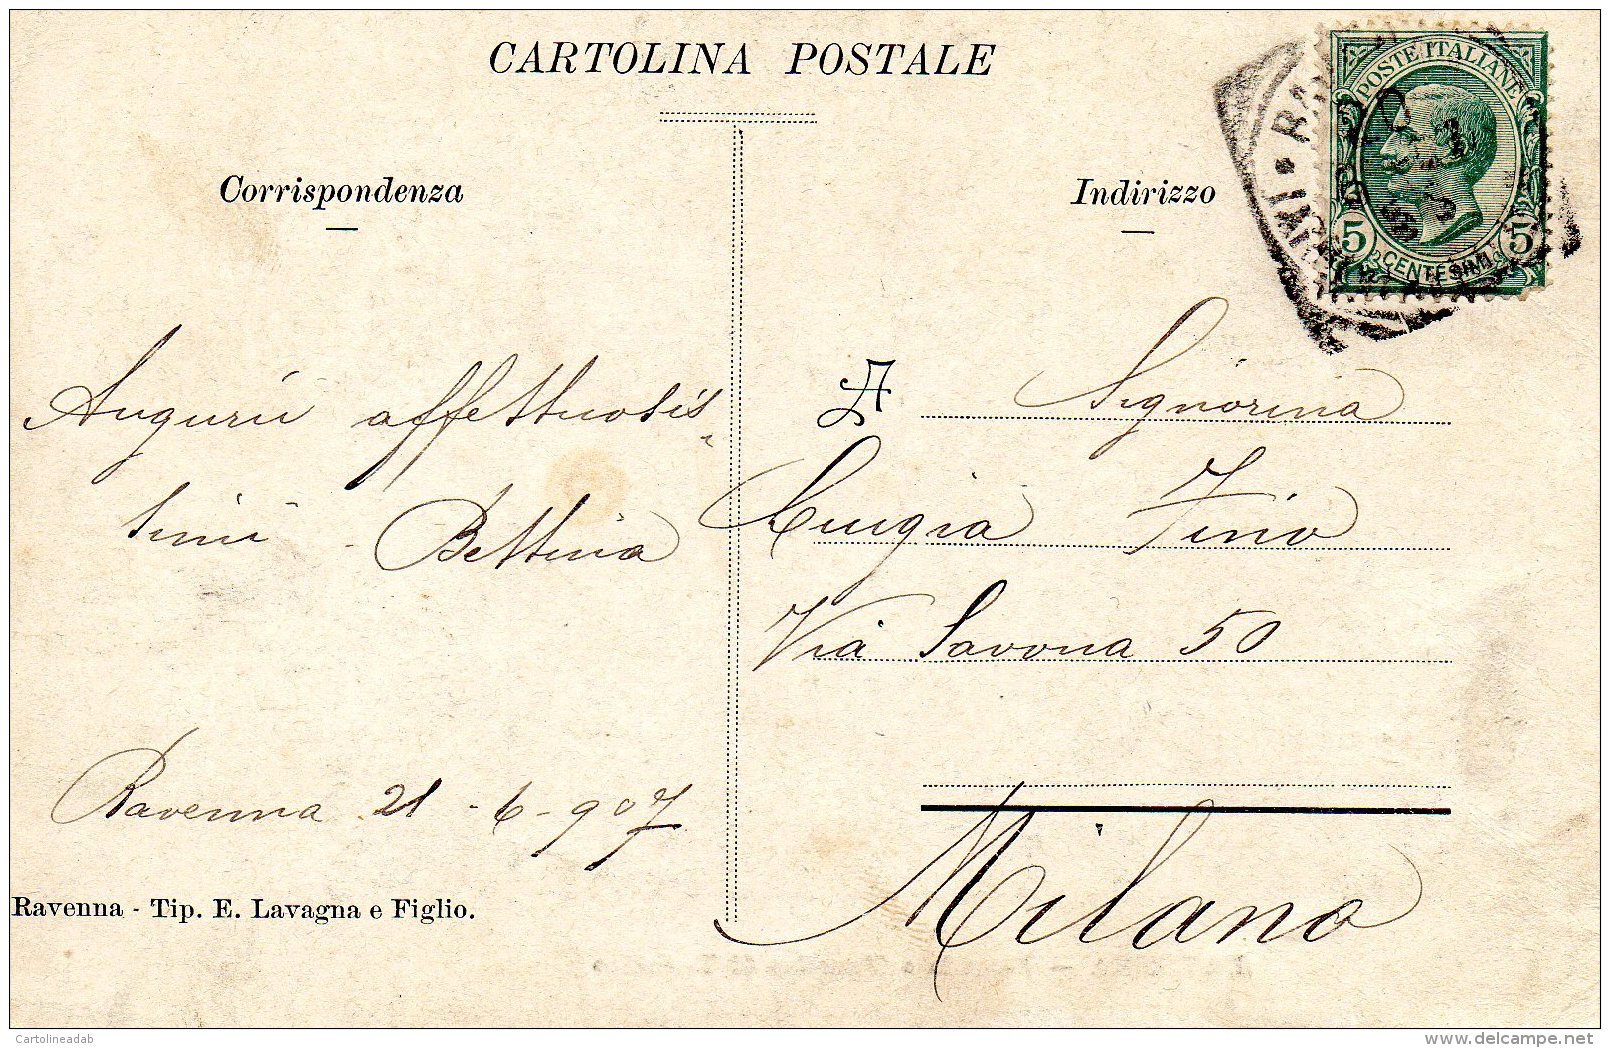 CARTOLINA POSTALE
Corrispondenza
Indirizzo
POSTE ITALIANE
5 CENTESIMI 5
Augurii affettuosis-
simi - Bettina
Ravenna 21-6-907
Ravenna - Tip. E. Lavagna e Figlio.
A Signorina
Luigia Fino
Via Savona 50
Milano
Cartolineadab
delcampe.net